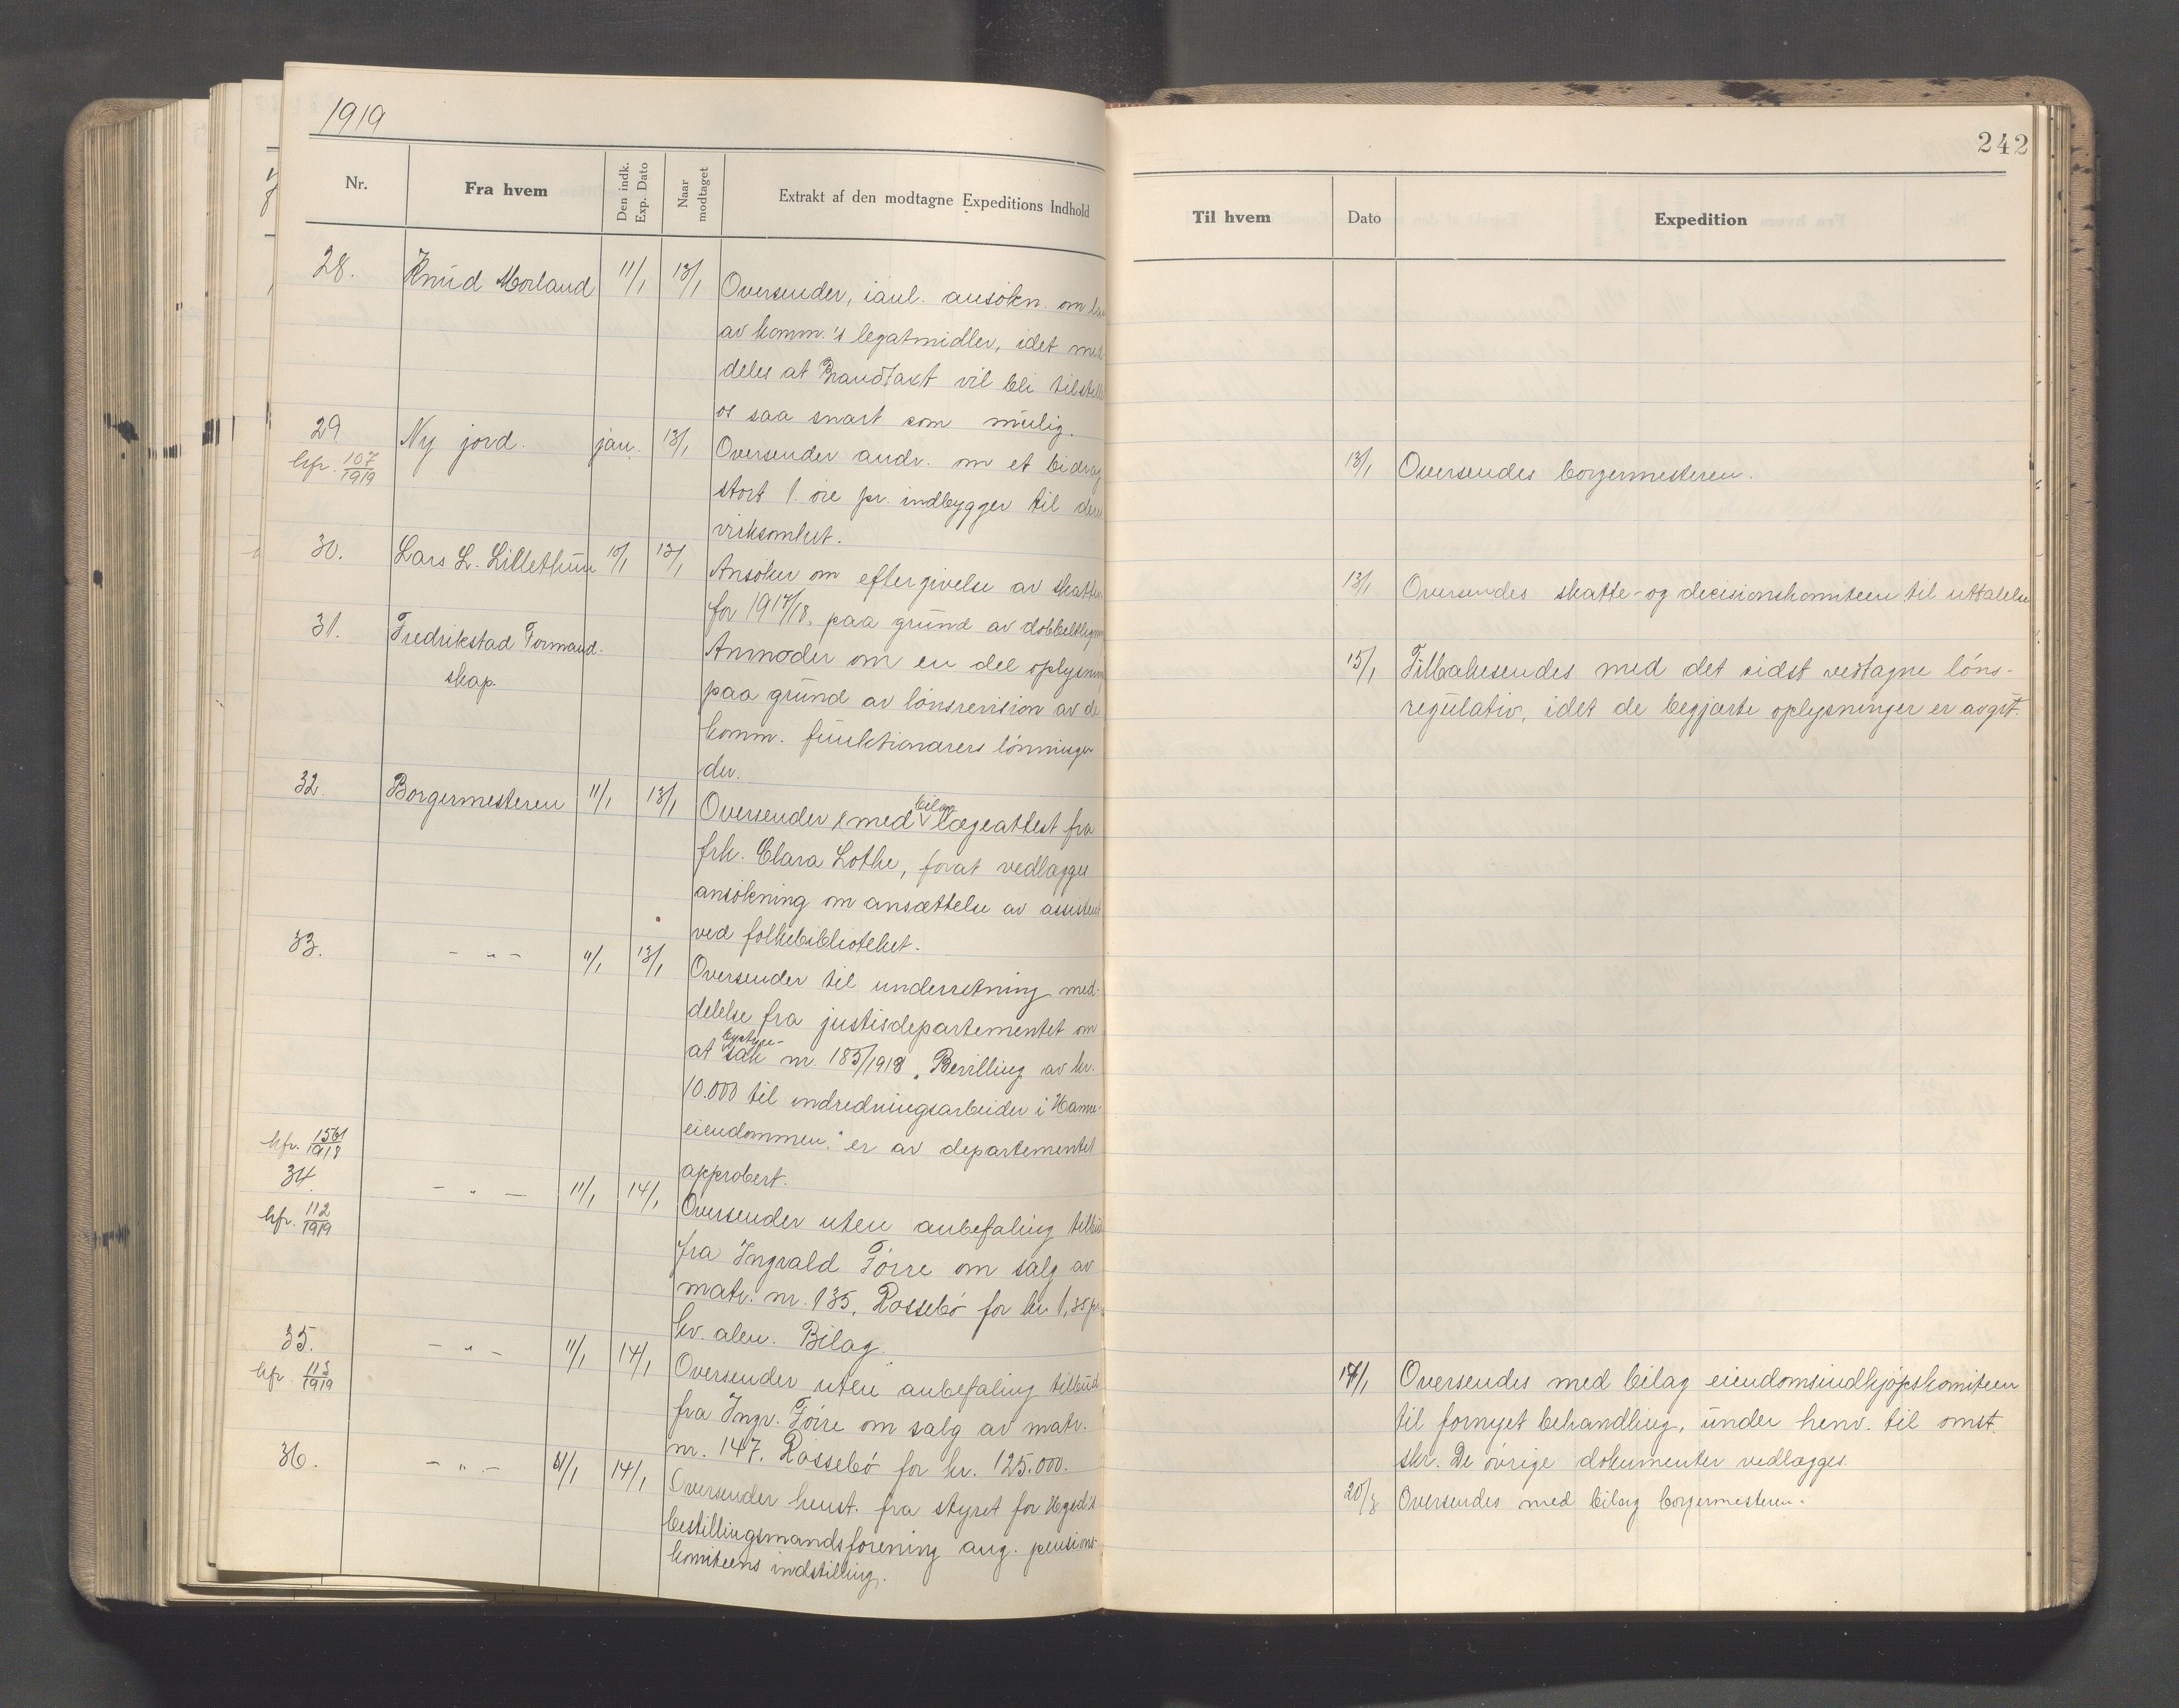 1919
Nr.
Fra hvem
Den indk. Exp. Dato
Naar modtaget
Extrakt af den modtagne Expeditions Indhold
28.
Knud Morland
11/1
13/1
Oversender, ianl. ansökn. om
av komm.'s legatmidler, idet med-
deles at Brandtakt vil bli tilstillet
os saa snart som mulig.
29
kfr. 107/1919
Ny jord.
jan.
13/1
Oversender andr. om et bidrag
stort 1 öre pr. indbygger til deres
virksomhet.
30.
Lars L. Lillethun
10/1
13/1
Ansöker om eftergivelse av skatten
for 1917/18, paa grund av dobbeltlign
31.
Fredrikstad Formand-
skap.
Anmoder om en del oplysning
paa grund av lönsrevision av de
komm. funktionærers lönninger
der.
32.
Borgermesteren
11/1
13/1
Oversender med bilag lægeattest fra
frk. Clara Lothe, forat vedlægges
ansökning om ansættelse av assistent
ved folkebiblioteket.
33.
- " -
11/1
13/1
Oversender til underretning med-
delelse fra justisdepartementet om
at bystyre-sak nr. 185/1918 „Bevilling av kr.
10.000 til indredningsarbeider i Havne-
eiendommen," er av departementet
approbert.
kfr. 1561/1918
34.
kfr. 112/1919
- " -
11/1
14/1
Oversender uten anbefaling tilbud
fra Ingvald Törre om salg av
matr. nr. 135, Rossebö for kr 1,35 pr.
kv. alen. Bilag.
35.
kfr. 113/1919
- " -
11/1
14/1
Oversender uten anbefaling tilbud
fra Ingv. Törre om salg av matr.
nr. 147, Rossebö for kr. 125.000.
36.
- " -
11/1
14/1
Oversender henst. fra styret for Hgsd's
bestillingsmandsforening ang. pensions-
komiteens indstilling.
242
Til hvem
Dato
Expedition
13/1
Oversendes borgermesteren.
13/1
Oversendes skatte- og decisionskomiteen til uttalelse
15/1
Tilbakesendes med det sidst vedtagne löns-
regulativ, idet de begjærte oplysninger er avgit.
17/1
Oversendes med bilag eiendomsindkjöpskomiteen
til fornyet behandling, under henv. til omst.
skr. De övrige dokumenter vedlægges.
20/3
Oversendes med bilag borgermesteren.